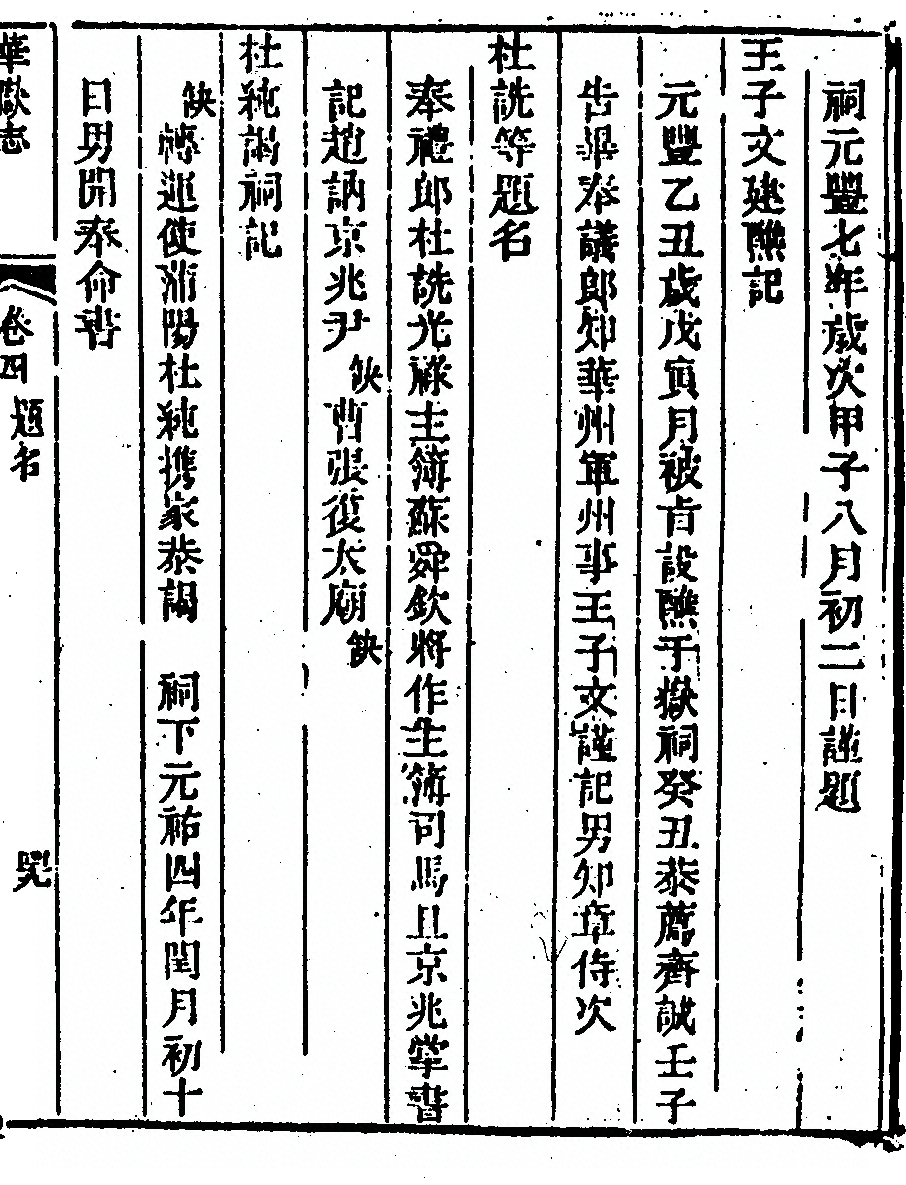 祠元豐七年歲次甲子八月初二日謹題
王子文建醮記
元豐乙丑歲戊寅月被旨設醮于嶽祠癸丑恭薦齋誠壬子
告畢奉議郎知華州軍州事王子文謹記男知章侍次
杜詵等題名
奉禮郎杜詵光祿主簿蘇舜欽將作主簿司馬旦京兆掌書
記趙訥京兆尹缺曹張復太廟缺
杜純謁祠記
缺轉運使濟陽杜純攜家恭謁 祠下元祐四年閏月初十
日男開奉命書
華嶽志 卷四 題名